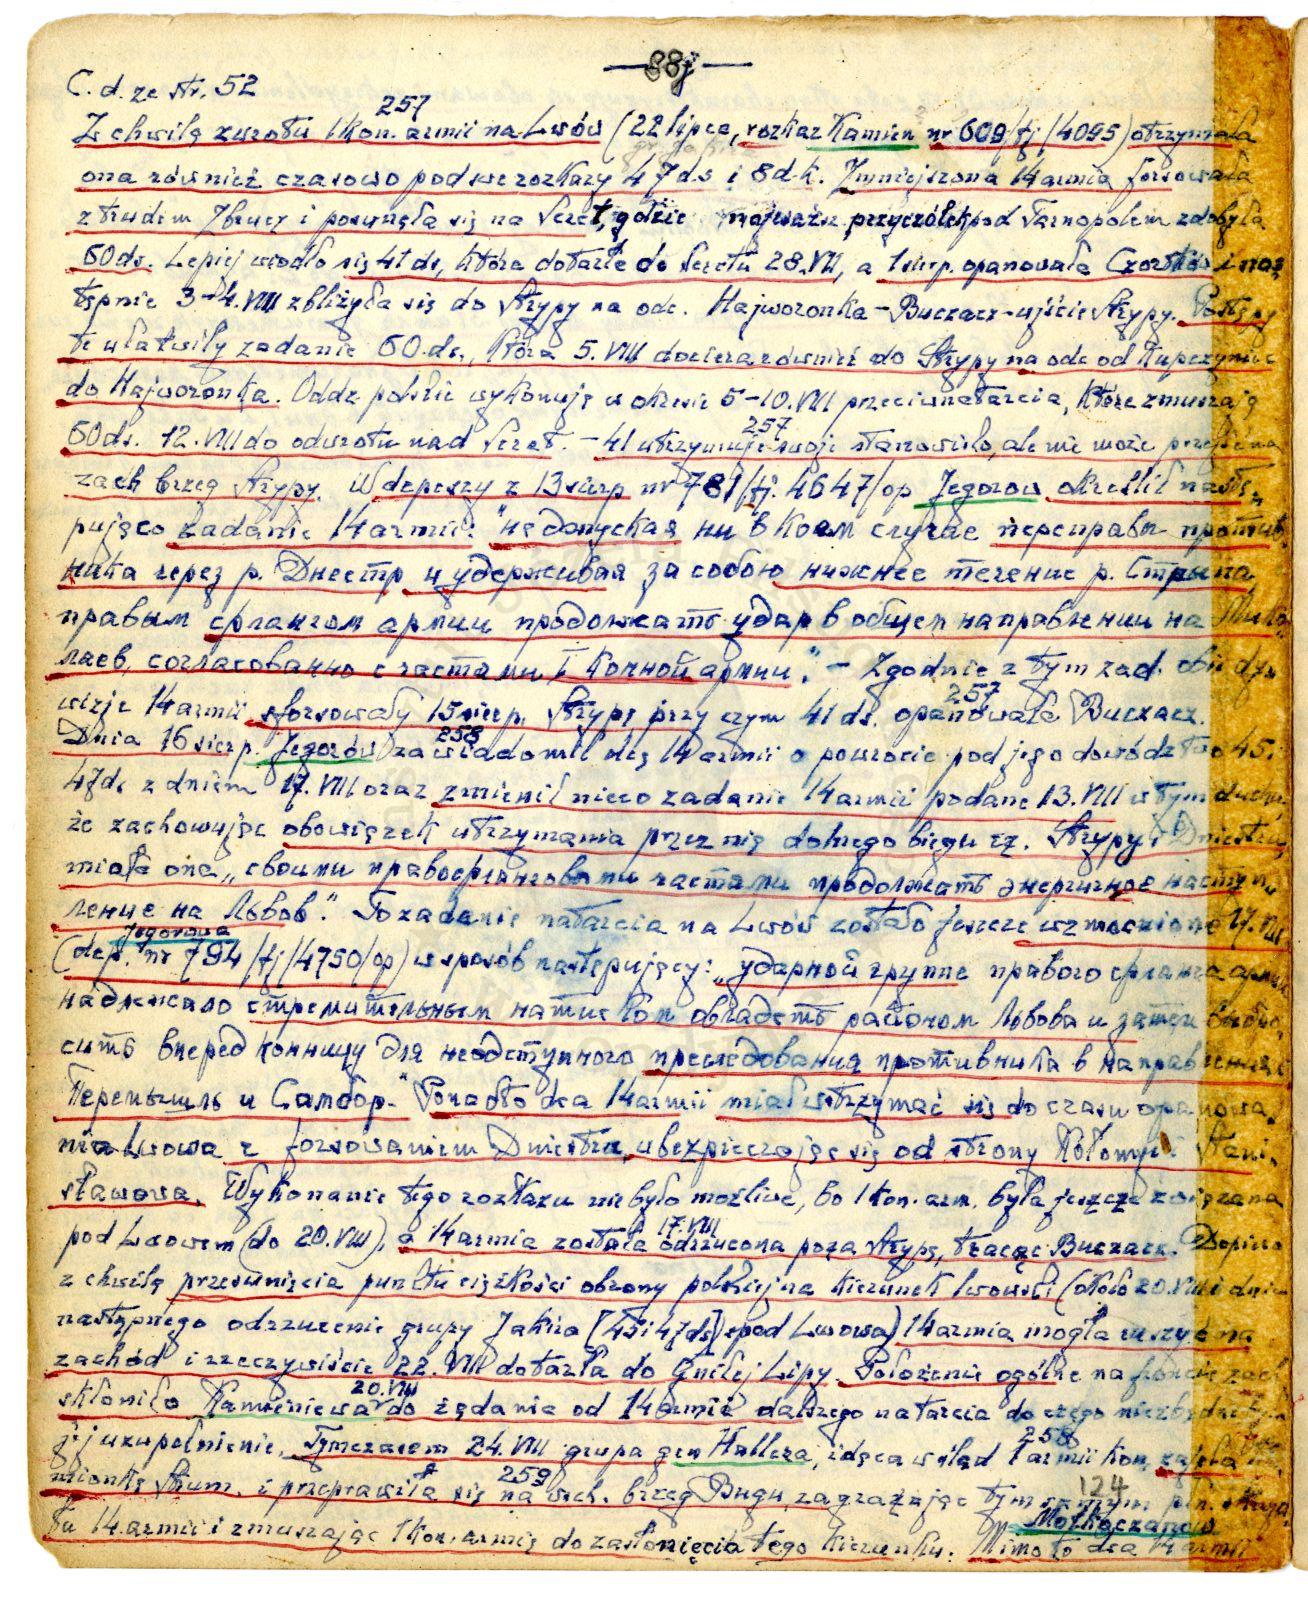 88j
C. d. ze str. 52
257
Z chwilą zwrotu 1 kon. armii na Lwów (22 lipca, rozkaz Kamien nr 609/tj/4095) otrzymała
ona również czasowo pod swe rozkazy 47 ds i 8 d.k. Zmniejszona 14 armia forsowała
z trudem Zbrucz i posunęła się na Seret, gdzie najważn. przyczółek pod Tarnopolem zdobyła
60 ds. Lepiej wiodło się 41 ds, która dotarła do Seretu 28.VII, a 1 sierp. opanowała Czortków i nas
tępnie 3-4.VIII zbliżyła się do Strypy na odc. Hajworonka - Buczacz - ujście Strypy. Postępy
te ułatwiły zadanie 60 ds., która 5.VIII dociera również do Strypy na odc od Kupczyniec
do Hajworonka. Oddz polskie wykonują w okresie 5-10.VIII przeciwnatarcia, które zmuszają
257
60 ds. 12.VIII do odwrotu nad Seret - 41 utrzymuje swoje stanowisko, ale nie może przejść na
zach brzeg Strypy. W depeszy z 13 sierp nr 781/tj. 4647/op Jegorow określił nastę
pująco zadanie 14 armii: "не допуская ни в коем случае переправы против
ника через р. Днестр и удерживая за собою нижнее течение р. Стрыпа
правым флангом армии продолжать удар в общем направлении на Мико
лаев, согласованно с частями I Конной армии". - Zgodnie z tym zad. obie dy
257
wizje 14 armii sforsowały 15 sierp. Strypę przy czym 41 ds. opanowała Buczacz.
258
Dnia 16 sierp. Jegorów zawiadomił dcę 14 armii o powrocie pod jego dowództwo 45 i
47 ds z dniem 17.VIII oraz zmienił nieco zadanie 14 armii podane 13.VIII w tym duchu,
że zachowując obowiązek utrzymania przez nią dolnego biegu rz. Strypy i Dniestru,
miała ona "своими правофланговыми частями продолжать энергичное насту
пление на Львов." To zadanie natarcia na Lwów zostało jeszcze wzmocnione 17.VIII
Jegorowa
(dep. nr 794/tj/4750/op) w sposób następujący: "ударной группе правого фланга армии
надлежало стремительным натиском овладеть районом Львова и затем выбро
сить вперед конницу для неотступного преследования противника в направлениях
Перемышль и Самбор." Ponadto dca 14 armii miał wstrzymać się do czasu opanowa
nia Lwowa z forsowaniem Dniestru, ubezpieczając się od strony Kołomyi i Stani
sławowa. Wykonanie tego rozkazu nie było możliwe, bo 1 kon. arm. była jeszcze związana
17.VIII
pod Lwowem (do 20.VIII), a 14 armia została odrzucona poza Strypę, tracąc Buczacz. Dopiero
z chwilą przesunięcia punktu ciężkości obrony polskiej na kierunek lwowski (około 20.VIII i dnia
następnego odrzucenie grupy Jakira [45 i 47 ds] spod Lwowa) 14 armia mogła ruszyć na
zachód i rzeczywiście 22.VIII dotarła do Gniłej Lipy. Położenie ogólne na froncie zach
20.VIII
skłoniło Kamieniewa do żądania od 14 armii dalszego natarcia do czego niezbędne
258
jej uzupełnienie. Tymczasem 24.VIII grupa gen Hallera, idąca w ślad 1 armii kon, zajęła
259
mionkę Strum. i przeprawiła się na wsch. brzeg Bugu, zagrażając tym samym
124
Mołkoczanow
tu 14 armii i zmuszając 1 kon. armię do zasłonięcia tego kierunku. Mimo to dca 14 armii